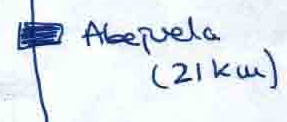 Abejuela
(21 km)